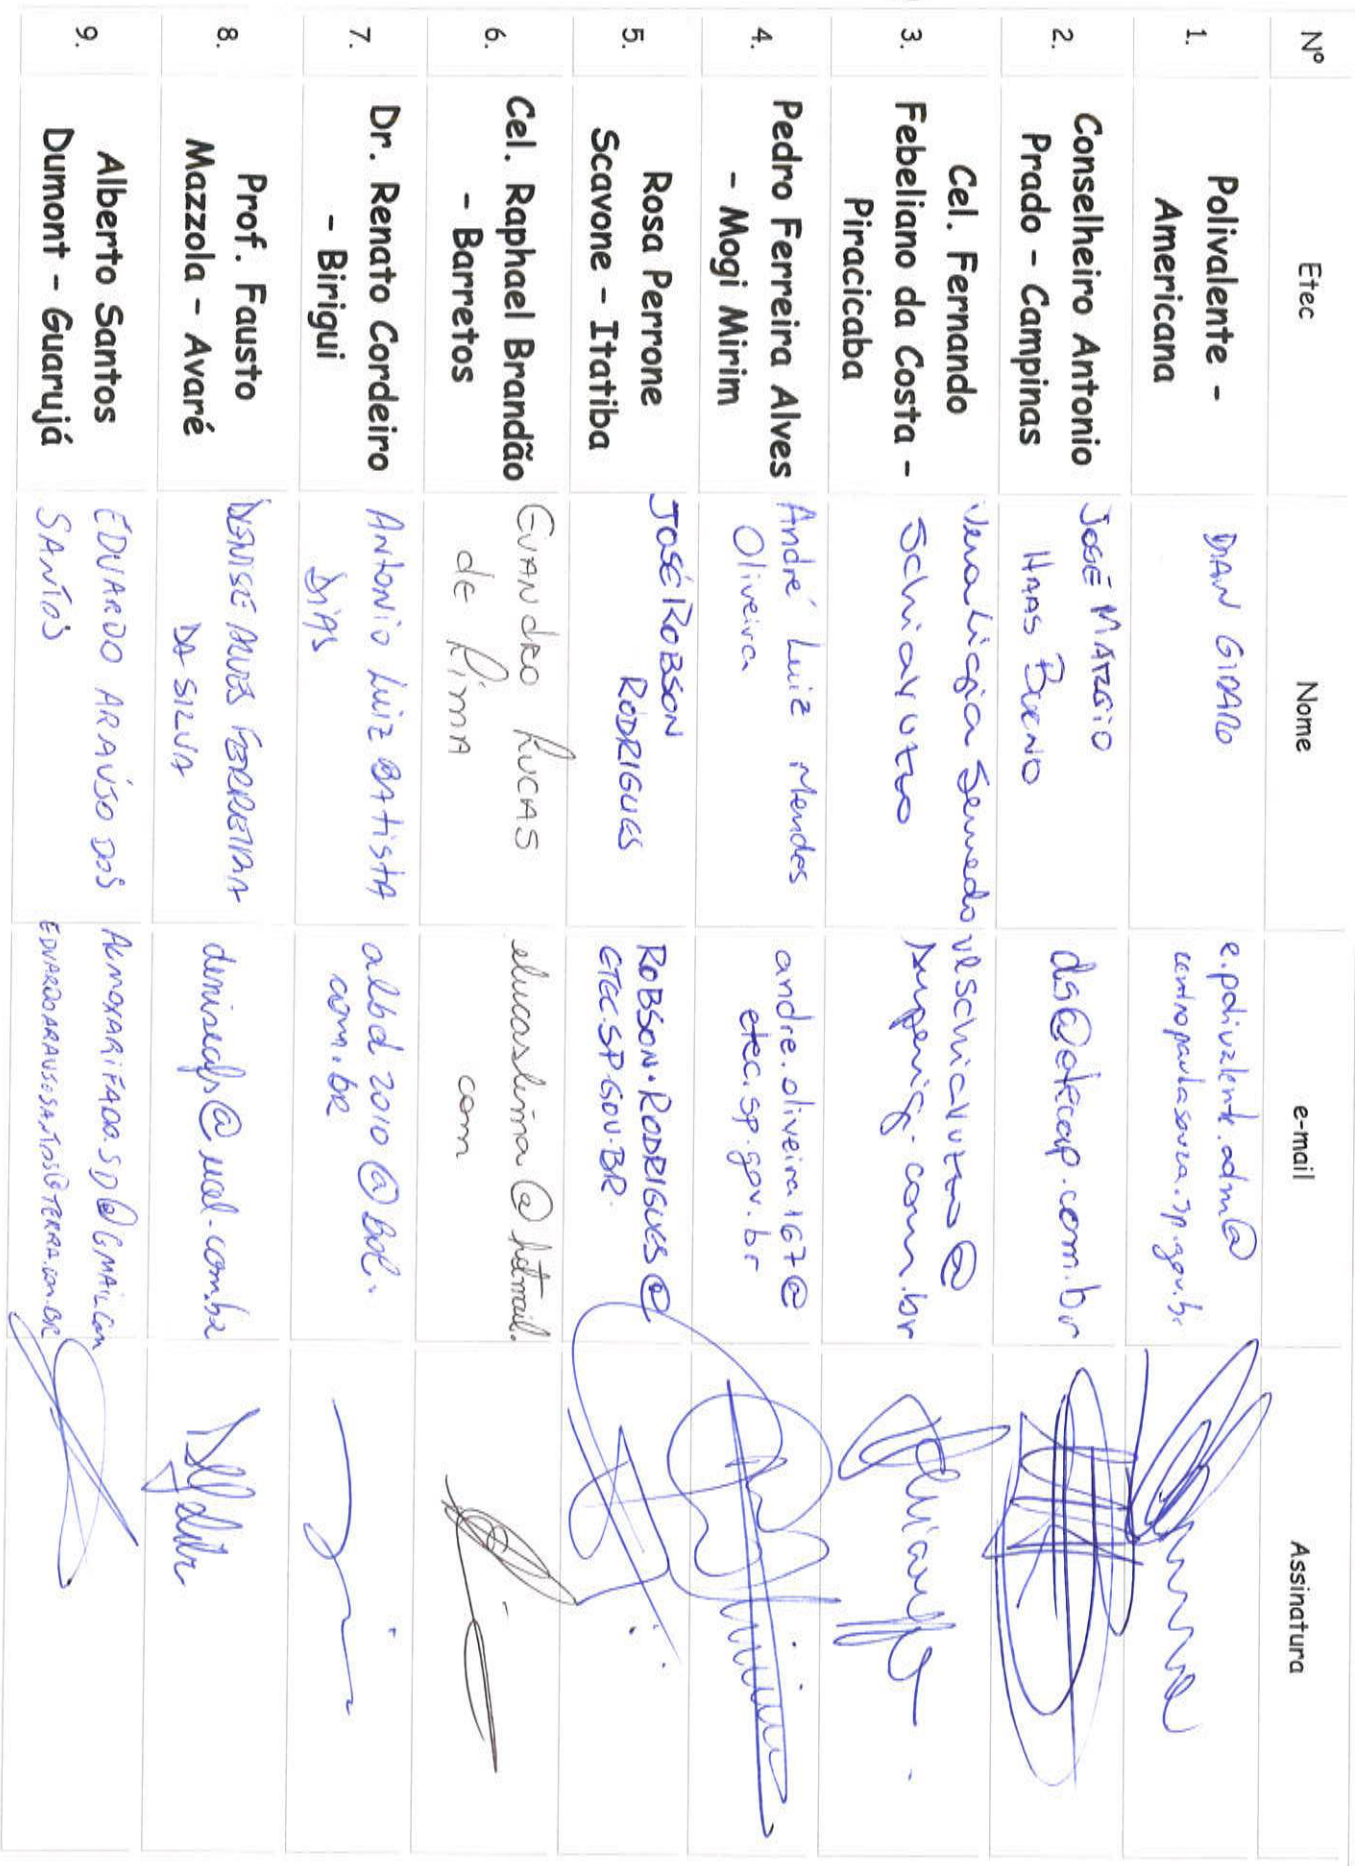 Nº Etec Nome e-mail Assinatura
1. Polivalente -
Americana
DIAN GIDARO
e.polivalente.adm@
centropaulasouza.sp.gov.br
2. Conselheiro Antonio
Prado - Campinas
JOSÉ MARZGIO
HAAS BUENO
ds@etecap.com.br
3. Cel. Fernando
Febeliano da Costa -
Piracicaba
Vera Ligia Semedo
Schiavuzzo
vlschiavuzzo@
superig.com.br
4. Pedro Ferreira Alves
- Mogi Mirim
André Luiz Mendes
Oliveira
andre.oliveira167@
etec.sp.gov.br
5. Rosa Perrone
Scavone - Itatiba
JOSÉ ROBSON
RODRIGUES
ROBSON.RODRIGUES@
ETEC.SP.GOV.BR.
6. Cel. Raphael Brandão
- Barretos
EVANDRO LUCAS
de LIMA
elucaslima@hotmail.
com
7. Dr. Renato Cordeiro
- Birigui
ANtonio Luiz BAtistA
DiAS
albd2010@Bol.
com.br
8. Prof. Fausto
Mazzola - Avaré
DENISE ALVES FERREIRA
DA SILVA
deniseafs@uol.com.br
9. Alberto Santos
Dumont - Guarujá
EDUARDO ARAUJO DOS
SANTOS
ALMOXARIFADO.SD@GMAIL.COM
EDUARDOARAUJOSANTOS@TERRA.COM.BR